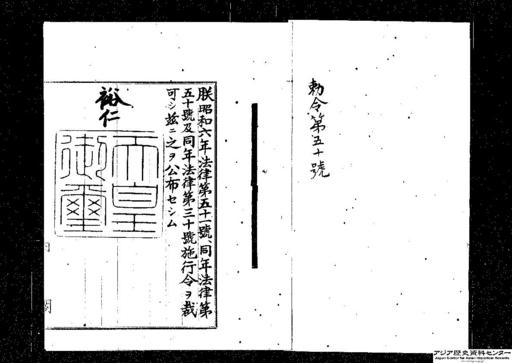 勅令第五十號
朕昭和六年法律第五十一號、同年法律第
五十號及同年法律第三十號施行令ヲ裁
可シ茲ニ之ヲ公布セシム
裕仁
天皇
御璽
内閣
アジア歴史資料センター
Japan Center for Asian Historical Records